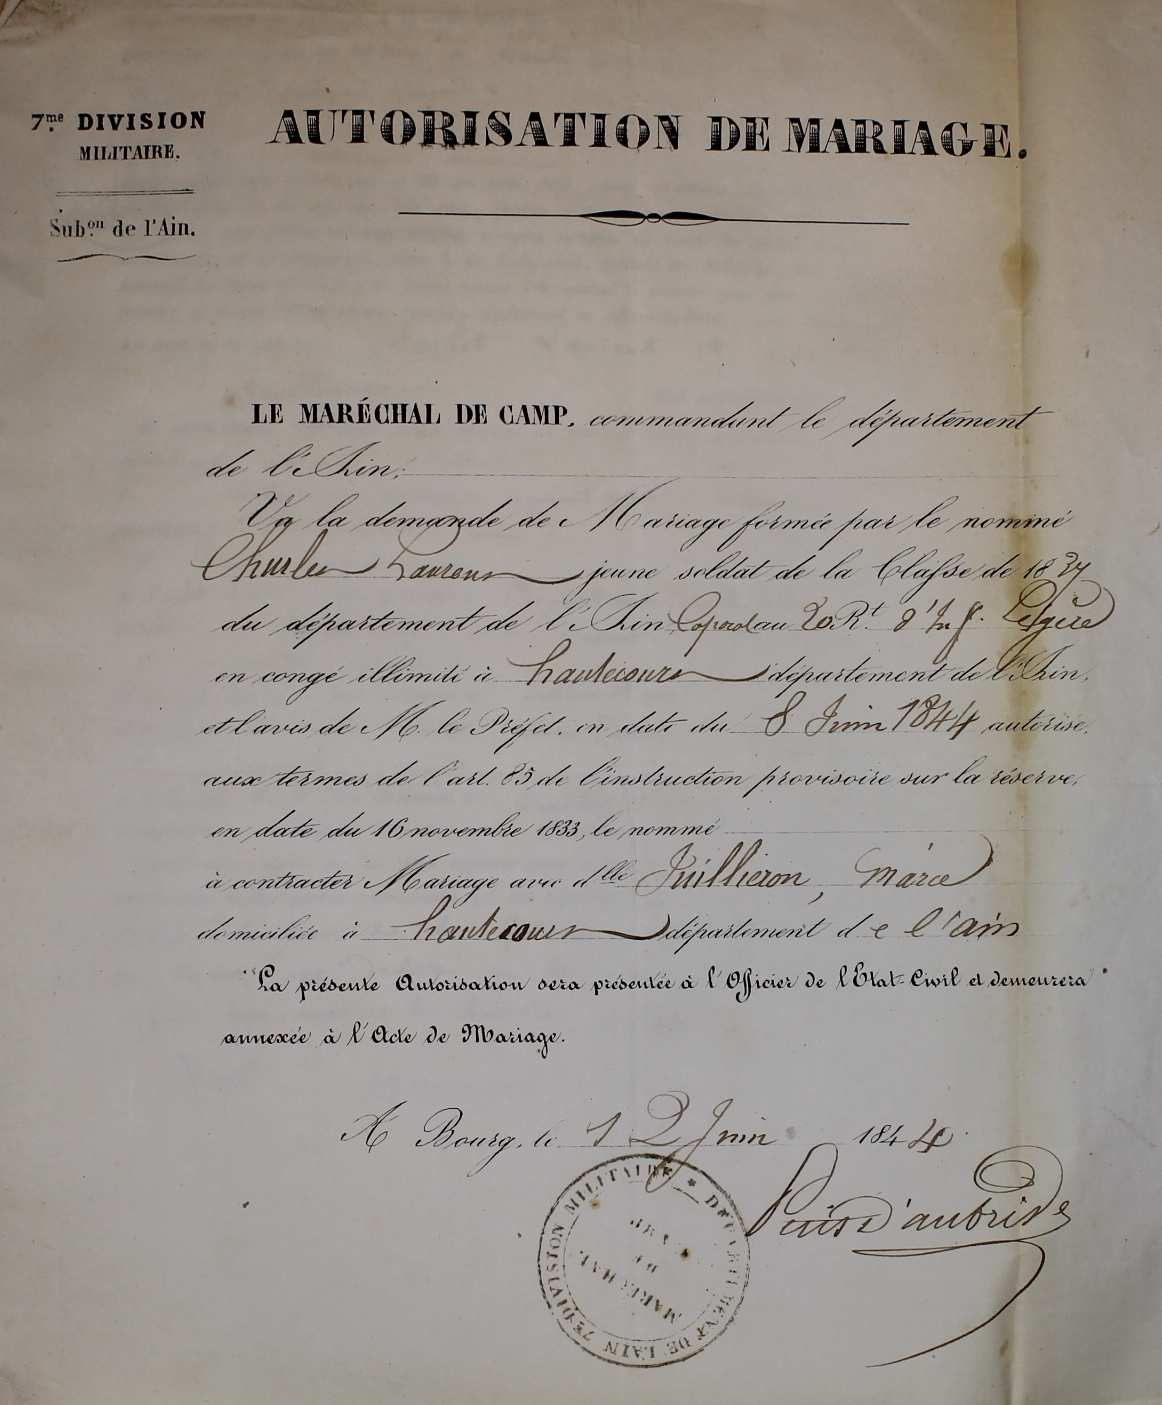 7.me DIVISION
MILITAIRE.
Sub.on de l'Ain.
AUTORISATION DE MARIAGE.
LE MARÉCHAL DE CAMP, commandant le département
de l'Ain;
Vu la demande de Mariage formée par le nommé
Charles Laurent jeune soldat de la Classe de 18
du département de l'Ain Caporal au 20 Rt. d'Inf. Légère
en congé illimité à hautecours département de l'Ain,
et l'avis de M. le Préfet, en date du 8 Juin 1844 autorise,
aux termes de l'art. 85 de l'instruction provisoire sur la réserve,
en date du 16 novembre 1833, le nommé
à contracter Mariage avec dlle Juillieron, marie
domiciliée à hautecours département de l'ain
La présente Autorisation sera présentée à l'Officier de l'Etat-Civil et demeurera
annexée à l'Acte de Mariage.
A Bourg, le 12 Juin 1844
7e DIVISION MILITAIRE * DÉPARTEMENT DE L'AIN
MARÉCHAL
DE